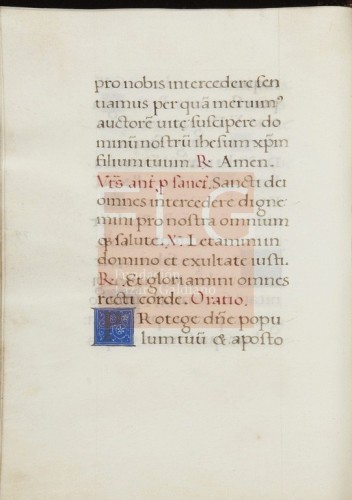 pro nobis intercedere sen
tiamus per quã meruimꝰ
auctorẽ uitę suscipere do
minũ nostrũ ihesum xp̃m
filium tuum. ℟. Amen.
añt. p sanct. Sancti dei
omnes intercedere digne
mini pro nostra omnium
qȝ salute. ℣. Letamini in
domino et exultate iusti.
℟. Et gloriamini omnes
recti corde. Oratio.
PRotege dñe popu
lum tuũ & aposto
FLG
Fundación